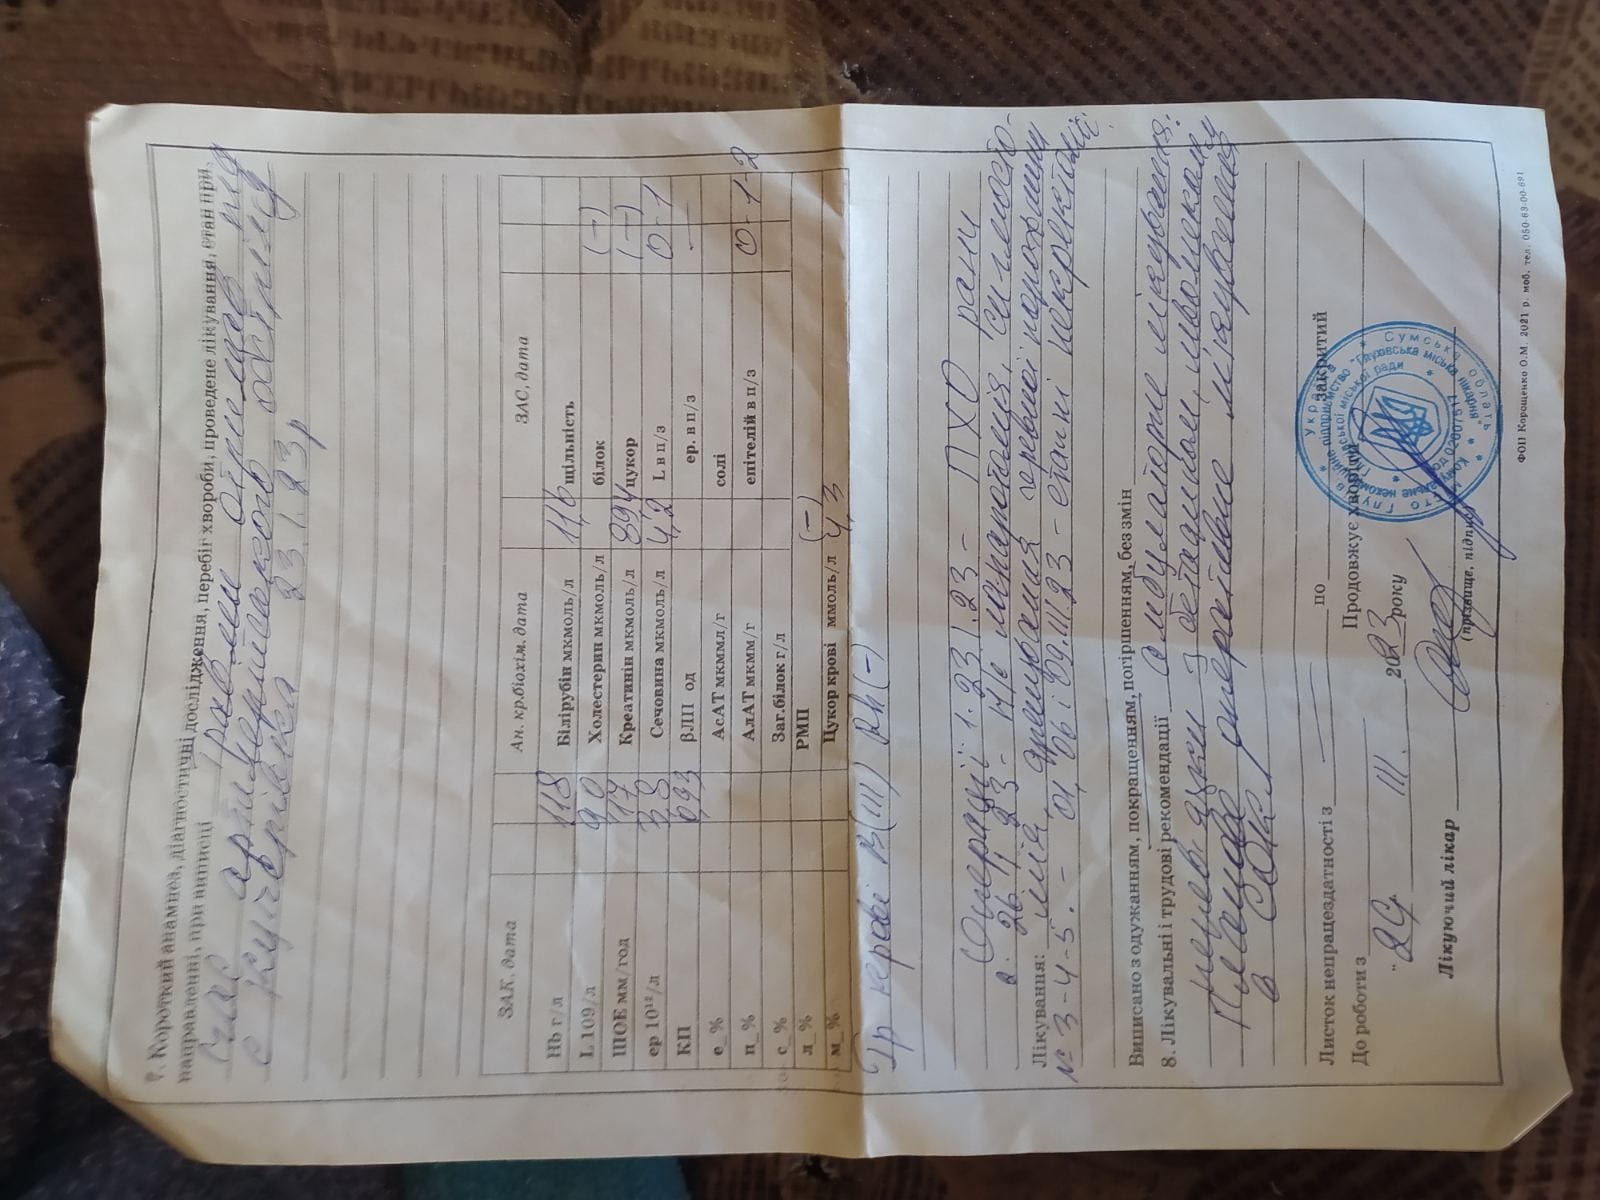 7. Короткий анамнез, діагностичні дослідження, перебіг хвороби, проведене лікування, стан при
направленні, при виписці рани отримав під
час артилерійського обстрілу
с Кучерівка 23.I.23р
ЗАК, дата Ан. кр.біохім. дата ЗАС, дата
Hb г/л 118 Білірубін мкмоль/л 11,6 щільність
L 109/л 9,0 Холестерин мкмоль/л білок (-)
ШОЕ мм/год 17 Креатинін мкмоль/л 894 цукор (-)
ер 10¹²/л 3,8 Сечовина мкмоль/л 4,2 L в п/з 0-1
КП 0,93 βЛП од ер. в п/з —
е_% АсАТ мкммл/г солі
п_% АлАТ мкмм/г епітелій в п/з 0-1-2
с_% Заг.білок г/л
л_% РМП (-)
м_% Цукор крові ммоль/л 4,3
Гр крові B(III) Rh(-)
Операції 1. 23.I.23 - ПХО рани
2. 26.I.23 - лапаротомія,
Лікування: дренування черевної порожнини
№ 3-4-5. - 01, 06 і 09.III.23 - етапні некректомії.
Виписано з одужанням, покращенням, погіршенням, без змін
8. Лікувальні і трудові рекомендації амбулаторне лікування:
перев'язки з бетадином, левомеколем
оперативне лікування
в СОКЛ
Листок непрацездатності з по закритий
До роботи з Продовжує хворіти
"29" III. 2023 року
Лікуючий лікар
(прізвище, підпис)
Україна * Сумська область * місто Глухів
Комунальне некомерційне підприємство "Глухівська міська лікарня"
Глухівської міської ради
ФОП Корощенко О.М. 2021 р. моб. тел. 050-63-00-691